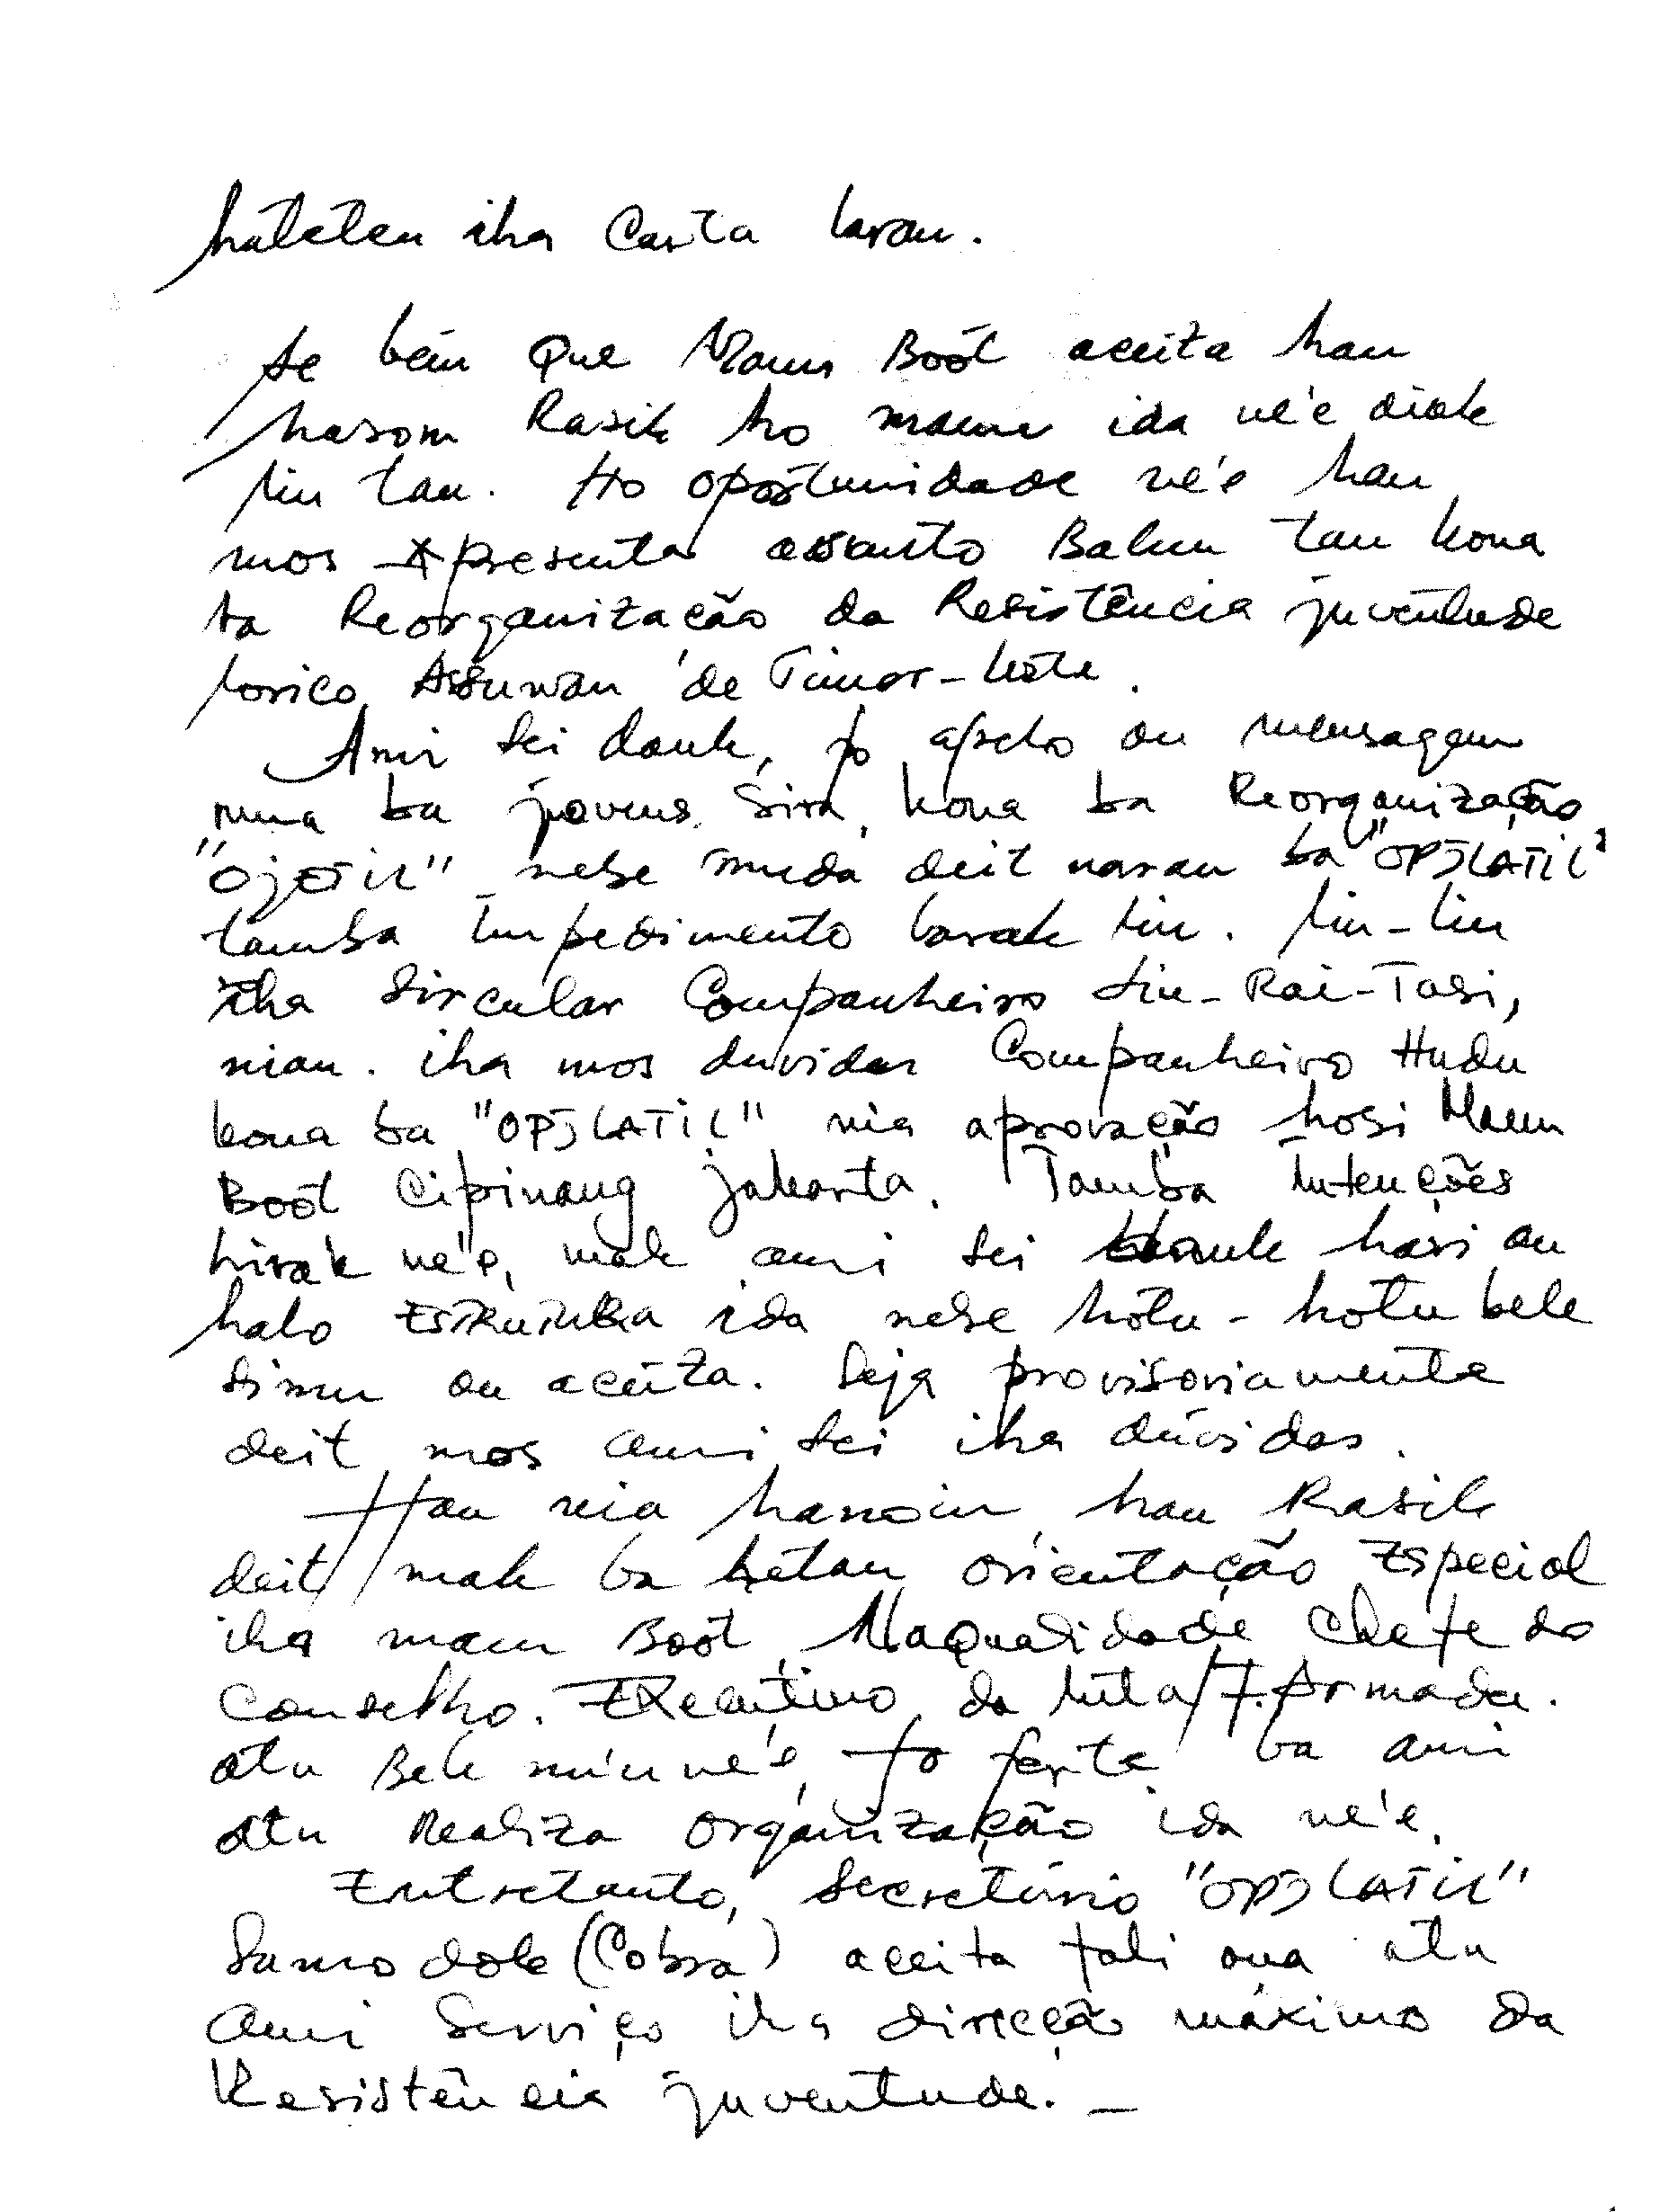 hateten iha Carta laran.
Se bém Que Maun Boót aceita hau
hasom Rasik ho maun ida né'e diak
liu tan. Ho oportunidade né'e hau
mos Apresenta assunto Balun tan kona
ba Reorganização da Resistência juventude
lorico Assuwan de Timor-Leste.
Ami Sei dauk, fo apelo ou mensagem
ruma ba jovens Sira, kona ba Reorganização
"OJETIL" nebe mudá deit naran ba "OPJLATIL"
tamba Impedimento barak liu. liu-liu
iha Sircular Companheiro Liu-Rai-Tasi,
nian. iha mos duvidas Companheiro Hudu
kona ba "OPJLATIL" nia aprovação hosi Maun
Boót Cipinang jakarta. Tamba Intenções
hirak né'e, mak ami Sei dauk hari ou
halo Estrutura ida nebe hotu-hotu bele
Simu ou aceita. Seja provisoriamente
deit mos ami Sei iha dúvidas.
Hau nia hanoin, hau Rasik
deit mak ba hetan orientação Especial
iha maun Boót, Naqualidade Chefe do
Conselho. Executivo da luta/F.Armada.
atu Bele nu'u né'e, fo forte ba ami
atu Realiza organização ida né'e.
Entretanto, Secretário "OPJLATIL"
Samodok (Cobra) aceita fali ona atu
ami Serviço iha direcção máximo da
Resistência juventude. _